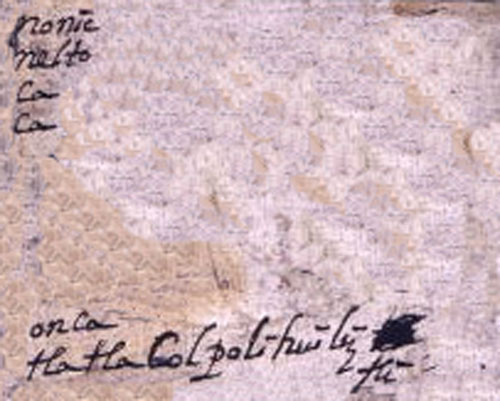 nonic
nelto
ca
ca
onca
tlatlaColpolihuiliz